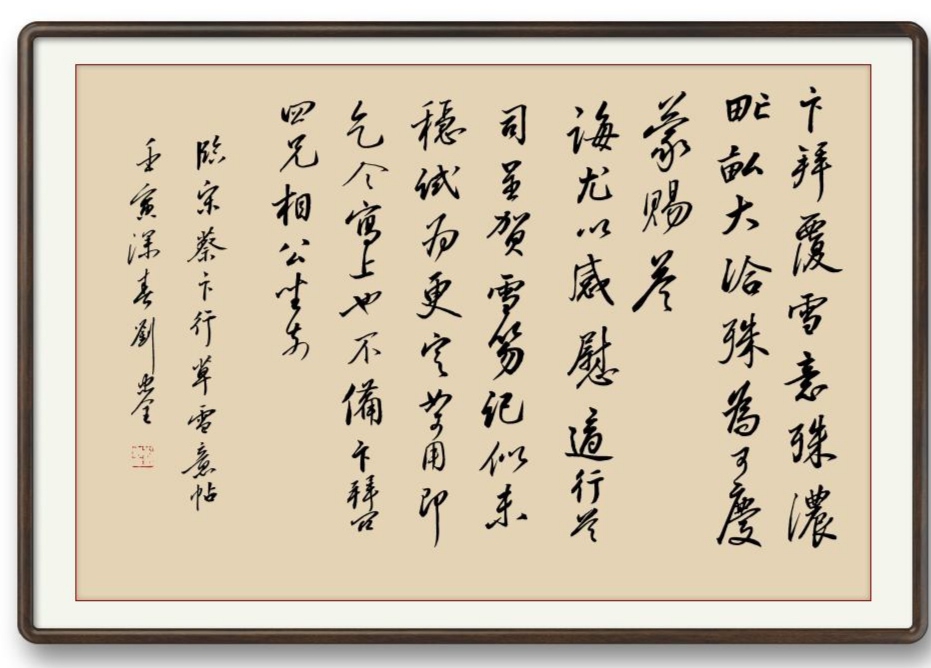 卞拜覆雪意殊濃
畎畝大洽殊為可慶
蒙賜答
誨尤以感慰適行答
司並賀雪笏紀似未
穩試為更定如可用即
乞令寫上也不備卞拜白
四兄相公坐前
臨宋蔡卞行草雪意帖
壬寅深春劉忠全